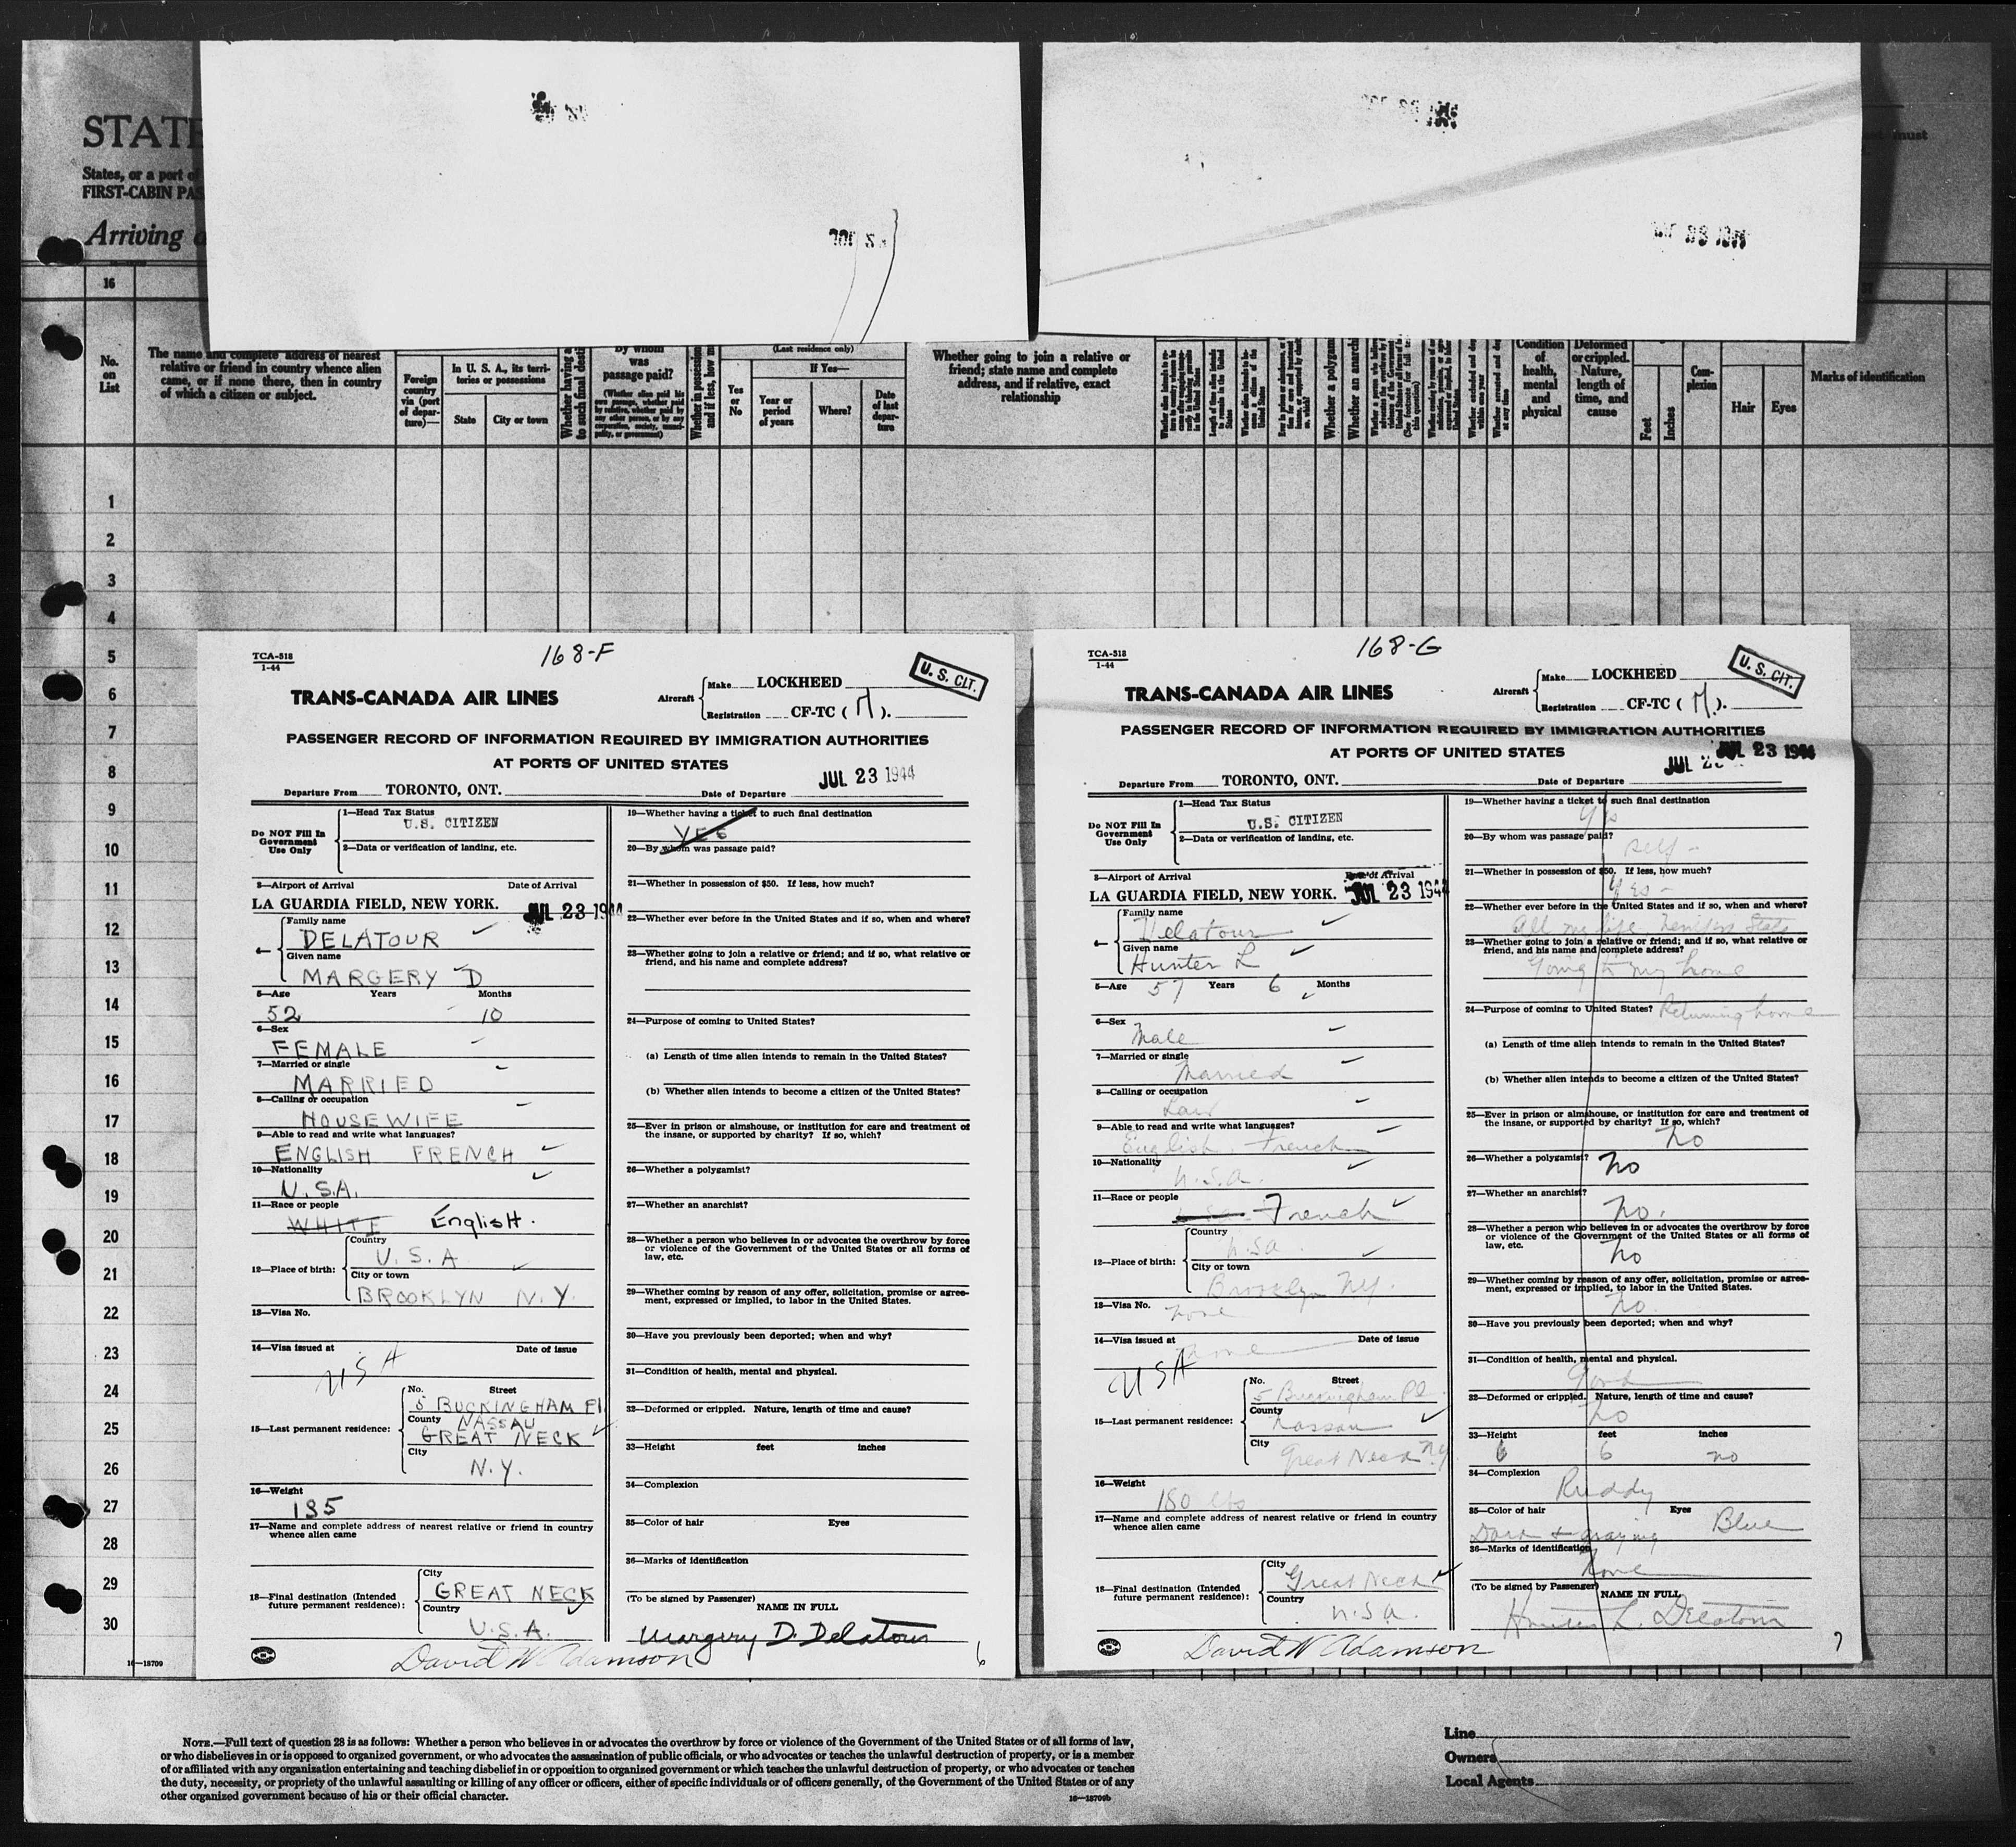 STATE
States, or a port of
FIRST-CABIN PAS
Arriving
must
16
No.
on
List
The name and complete address of nearest
relative or friend in country whence alien
came, or if none there, then in country
of which a citizen or subject.
Foreign
country
via (port
of depar-
ture)—
In U. S. A., its terri-
tories or possessions
State
City or town
By whom
was
passage paid?
(Whether alien paid his
own passage, whether paid
by relative, whether paid by
any other person, or by any
corporation, society, munici-
pality, or government)
(Last residence only)
Yes
or
No
If Yes—
Year or
period
of years
Where?
Date
of last
depar-
ture
Whether going to join a relative or
friend; state name and complete
address, and if relative, exact
relationship
Whether a polygam
Whether an anarchi
Condition
of
health,
mental
and
physical
Deformed
or crippled.
Nature,
length of
time, and
cause
Feet
Inches
Com-
plexion
Hair
Eyes
Marks of identification
1
2
3
4
5
6
7
8
9
10
11
12
13
14
15
16
17
18
19
20
21
22
23
24
25
26
27
28
29
30
16—18709
TCA-518
1-44
168-F
U. S. CIT.
TRANS-CANADA AIR LINES
Aircraft
Make LOCKHEED
Registration CF-TC ( ).
PASSENGER RECORD OF INFORMATION REQUIRED BY IMMIGRATION AUTHORITIES
AT PORTS OF UNITED STATES
JUL 23 1944
Departure From TORONTO, ONT. Date of Departure
Do NOT Fill In
Government
Use Only
1—Head Tax Status
U.S. CITIZEN
2—Data or verification of landing, etc.
3—Airport of Arrival Date of Arrival
LA GUARDIA FIELD, NEW YORK. JUL 23 1944
4—
Family name
DELATOUR
Given name
MARGERY D
5—Age Years Months
52 10
6—Sex
FEMALE
7—Married or single
MARRIED
8—Calling or occupation
HOUSEWIFE
9—Able to read and write what languages?
ENGLISH FRENCH
10—Nationality
U.S.A.
11—Race or people
WHITE English.
12—Place of birth:
Country
U.S.A
City or town
BROOKLYN N.Y.
13—Visa No.
14—Visa issued at Date of issue
USA
15—Last permanent residence:
No. Street
5 BUCKINGHAM Pl
County NASSAU
GREAT NECK
City
N.Y.
16—Weight
135
17—Name and complete address of nearest relative or friend in country
whence alien came
18—Final destination (Intended
future permanent residence):
City
GREAT NECK
Country
U.S.A.
David W Adamson
19—Whether having a ticket to such final destination
YES
20—By whom was passage paid?
21—Whether in possession of $50. If less, how much?
22—Whether ever before in the United States and if so, when and where?
23—Whether going to join a relative or friend; and if so, what relative or
friend, and his name and complete address?
24—Purpose of coming to United States?
(a) Length of time alien intends to remain in the United States?
(b) Whether alien intends to become a citizen of the United States?
25—Ever in prison or almshouse, or institution for care and treatment of
the insane, or supported by charity? If so, which?
26—Whether a polygamist?
27—Whether an anarchist?
28—Whether a person who believes in or advocates the overthrow by force
or violence of the Government of the United States or all forms of
law, etc.
29—Whether coming by reason of any offer, solicitation, promise or agree-
ment, expressed or implied, to labor in the United States.
30—Have you previously been deported; when and why?
31—Condition of health, mental and physical.
32—Deformed or crippled. Nature, length of time and cause?
33—Height feet inches
34—Complexion
35—Color of hair Eyes
36—Marks of identification
(To be signed by Passenger)
NAME IN FULL
Margery D. Delatour
6
TCA-518
1-44
168-G
U. S. CIT.
TRANS-CANADA AIR LINES
Aircraft
Make LOCKHEED
Registration CF-TC ( ).
PASSENGER RECORD OF INFORMATION REQUIRED BY IMMIGRATION AUTHORITIES
AT PORTS OF UNITED STATES
JUL 23 1944
Departure From TORONTO, ONT. Date of Departure
Do NOT Fill In
Government
Use Only
1—Head Tax Status
U.S. CITIZEN
2—Data or verification of landing, etc.
3—Airport of Arrival Date of Arrival
LA GUARDIA FIELD, NEW YORK. JUL 23 1944
4—
Family name
Delatour
Given name
Hunter L
5—Age 57 Years 6 Months
6—Sex
Male
7—Married or single
Married
8—Calling or occupation
Law
9—Able to read and write what languages?
English French
10—Nationality
U.S.A.
11—Race or people
French
12—Place of birth:
Country
U.S.A.
City or town
Brooklyn NY.
13—Visa No.
none
14—Visa issued at Date of issue
none
USA
15—Last permanent residence:
No. Street
5 Buckingham Pl
County
Nassau
City
Great Neck N.Y.
16—Weight
180 lbs
17—Name and complete address of nearest relative or friend in country
whence alien came
18—Final destination (Intended
future permanent residence):
City
Great Neck
Country
U.S.A.
David W Adamson
19—Whether having a ticket to such final destination
Yes
20—By whom was passage paid?
Self -
21—Whether in possession of $50. If less, how much?
Yes -
22—Whether ever before in the United States and if so, when and where?
All my life United States
23—Whether going to join a relative or friend; and if so, what relative or
friend, and his name and complete address?
Going to my home
24—Purpose of coming to United States? Returning home
(a) Length of time alien intends to remain in the United States?
(b) Whether alien intends to become a citizen of the United States?
25—Ever in prison or almshouse, or institution for care and treatment of
the insane, or supported by charity? If so, which?
No
26—Whether a polygamist? No
27—Whether an anarchist?
No.
28—Whether a person who believes in or advocates the overthrow by force
or violence of the Government of the United States or all forms of
law, etc.
No
29—Whether coming by reason of any offer, solicitation, promise or agree-
ment, expressed or implied, to labor in the United States.
No.
30—Have you previously been deported; when and why?
31—Condition of health, mental and physical.
Good
32—Deformed or crippled. Nature, length of time and cause?
No
33—Height feet inches
6 6 no
34—Complexion
Ruddy
35—Color of hair Eyes
Dark & graying Blue
36—Marks of identification
None
(To be signed by Passenger)
NAME IN FULL
Hunter L. Delatour
7
NOTE.—Full text of question 28 is as follows: Whether a person who believes in or advocates the overthrow by force or violence of the Government of the United States or of all forms of law,
or who disbelieves in or is opposed to organized government, or who advocates the assassination of public officials, or who advocates or teaches the unlawful destruction of property, or is a member
of or affiliated with any organization entertaining and teaching disbelief in or opposition to organized government or which teaches the unlawful destruction of property, or who advocates or teaches
the duty, necessity, or propriety of the unlawful assaulting or killing of any officer or officers, either of specific individuals or of officers generally, of the Government of the United States or of any
other organized government because of his or their official character.
16—18709b
Line
Owners
Local Agents